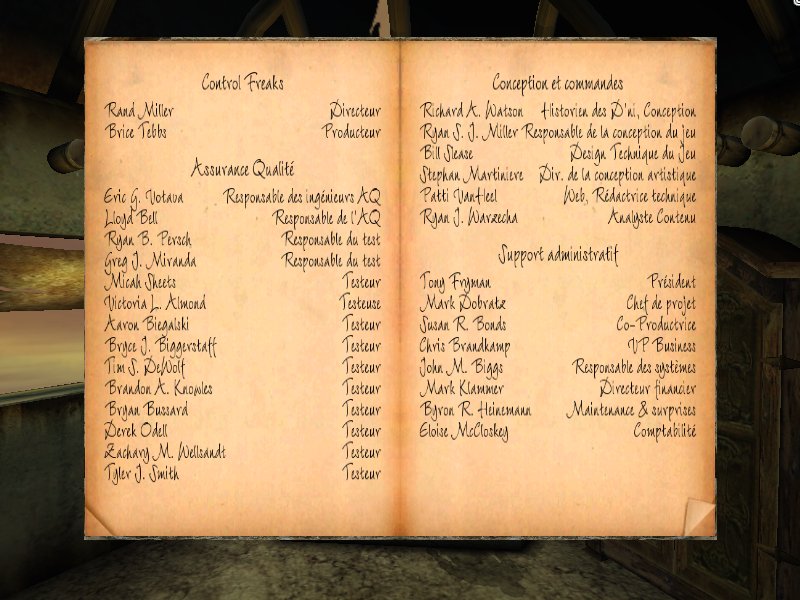 Control Freaks
Rand Miller Directeur
Brice Tebbs Producteur
Assurance Qualité
Eric G. Votava Responsable des ingénieurs AQ
Lloyd Bell Responsable de l'AQ
Ryan B. Persch Responsable du test
Greg J. Miranda Responsable du test
Micah Sheets Testeur
Victoria L. Almond Testeuse
Aaron Biegalski Testeur
Bryce J. Biggerstaff Testeur
Tim S. DeWolf Testeur
Brandon A. Knowles Testeur
Bryan Bussard Testeur
Derek Odell Testeur
Zachary M. Wellsandt Testeur
Tyler J. Smith Testeur
Conception et commandes
Richard A. Watson Historien des D'ni, Conception
Ryan S. J. Miller Responsable de la conception du jeu
Bill Slease Design Technique du Jeu
Stephan Martiniere Dir. de la conception artistique
Patti VanHeel Web, Rédactrice technique
Ryan J. Warzecha Analyste Contenu
Support administratif
Tony Fryman Président
Mark Dobratz Chef de projet
Susan R. Bonds Co-Productrice
Chris Brandkamp VP Business
John M. Biggs Responsable des systèmes
Mark Klammer Directeur financier
Byron R. Heinemann Maintenance & surprises
Eloise McCloskey Comptabilité